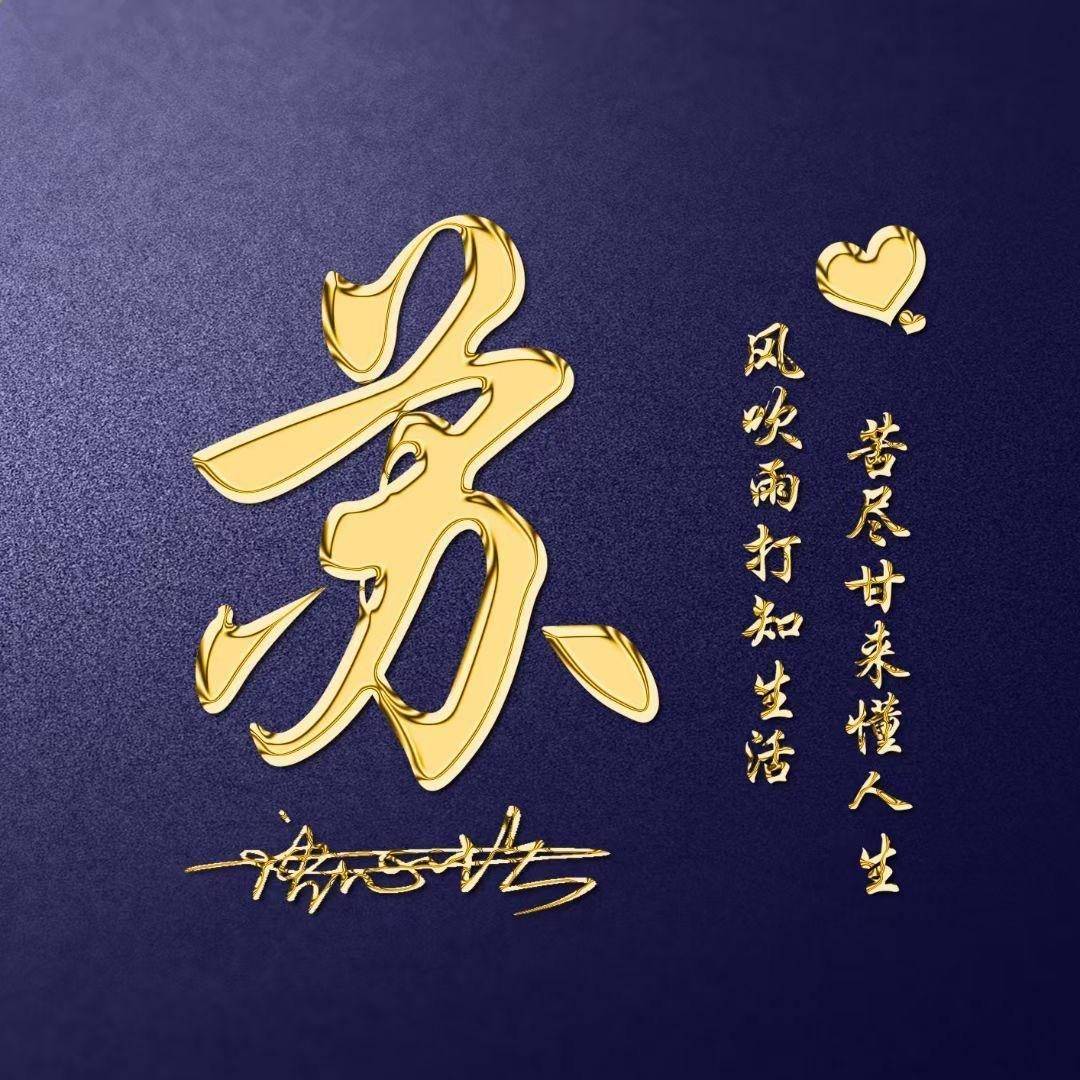 苏
风吹雨打知生活
苦尽甘来懂人生